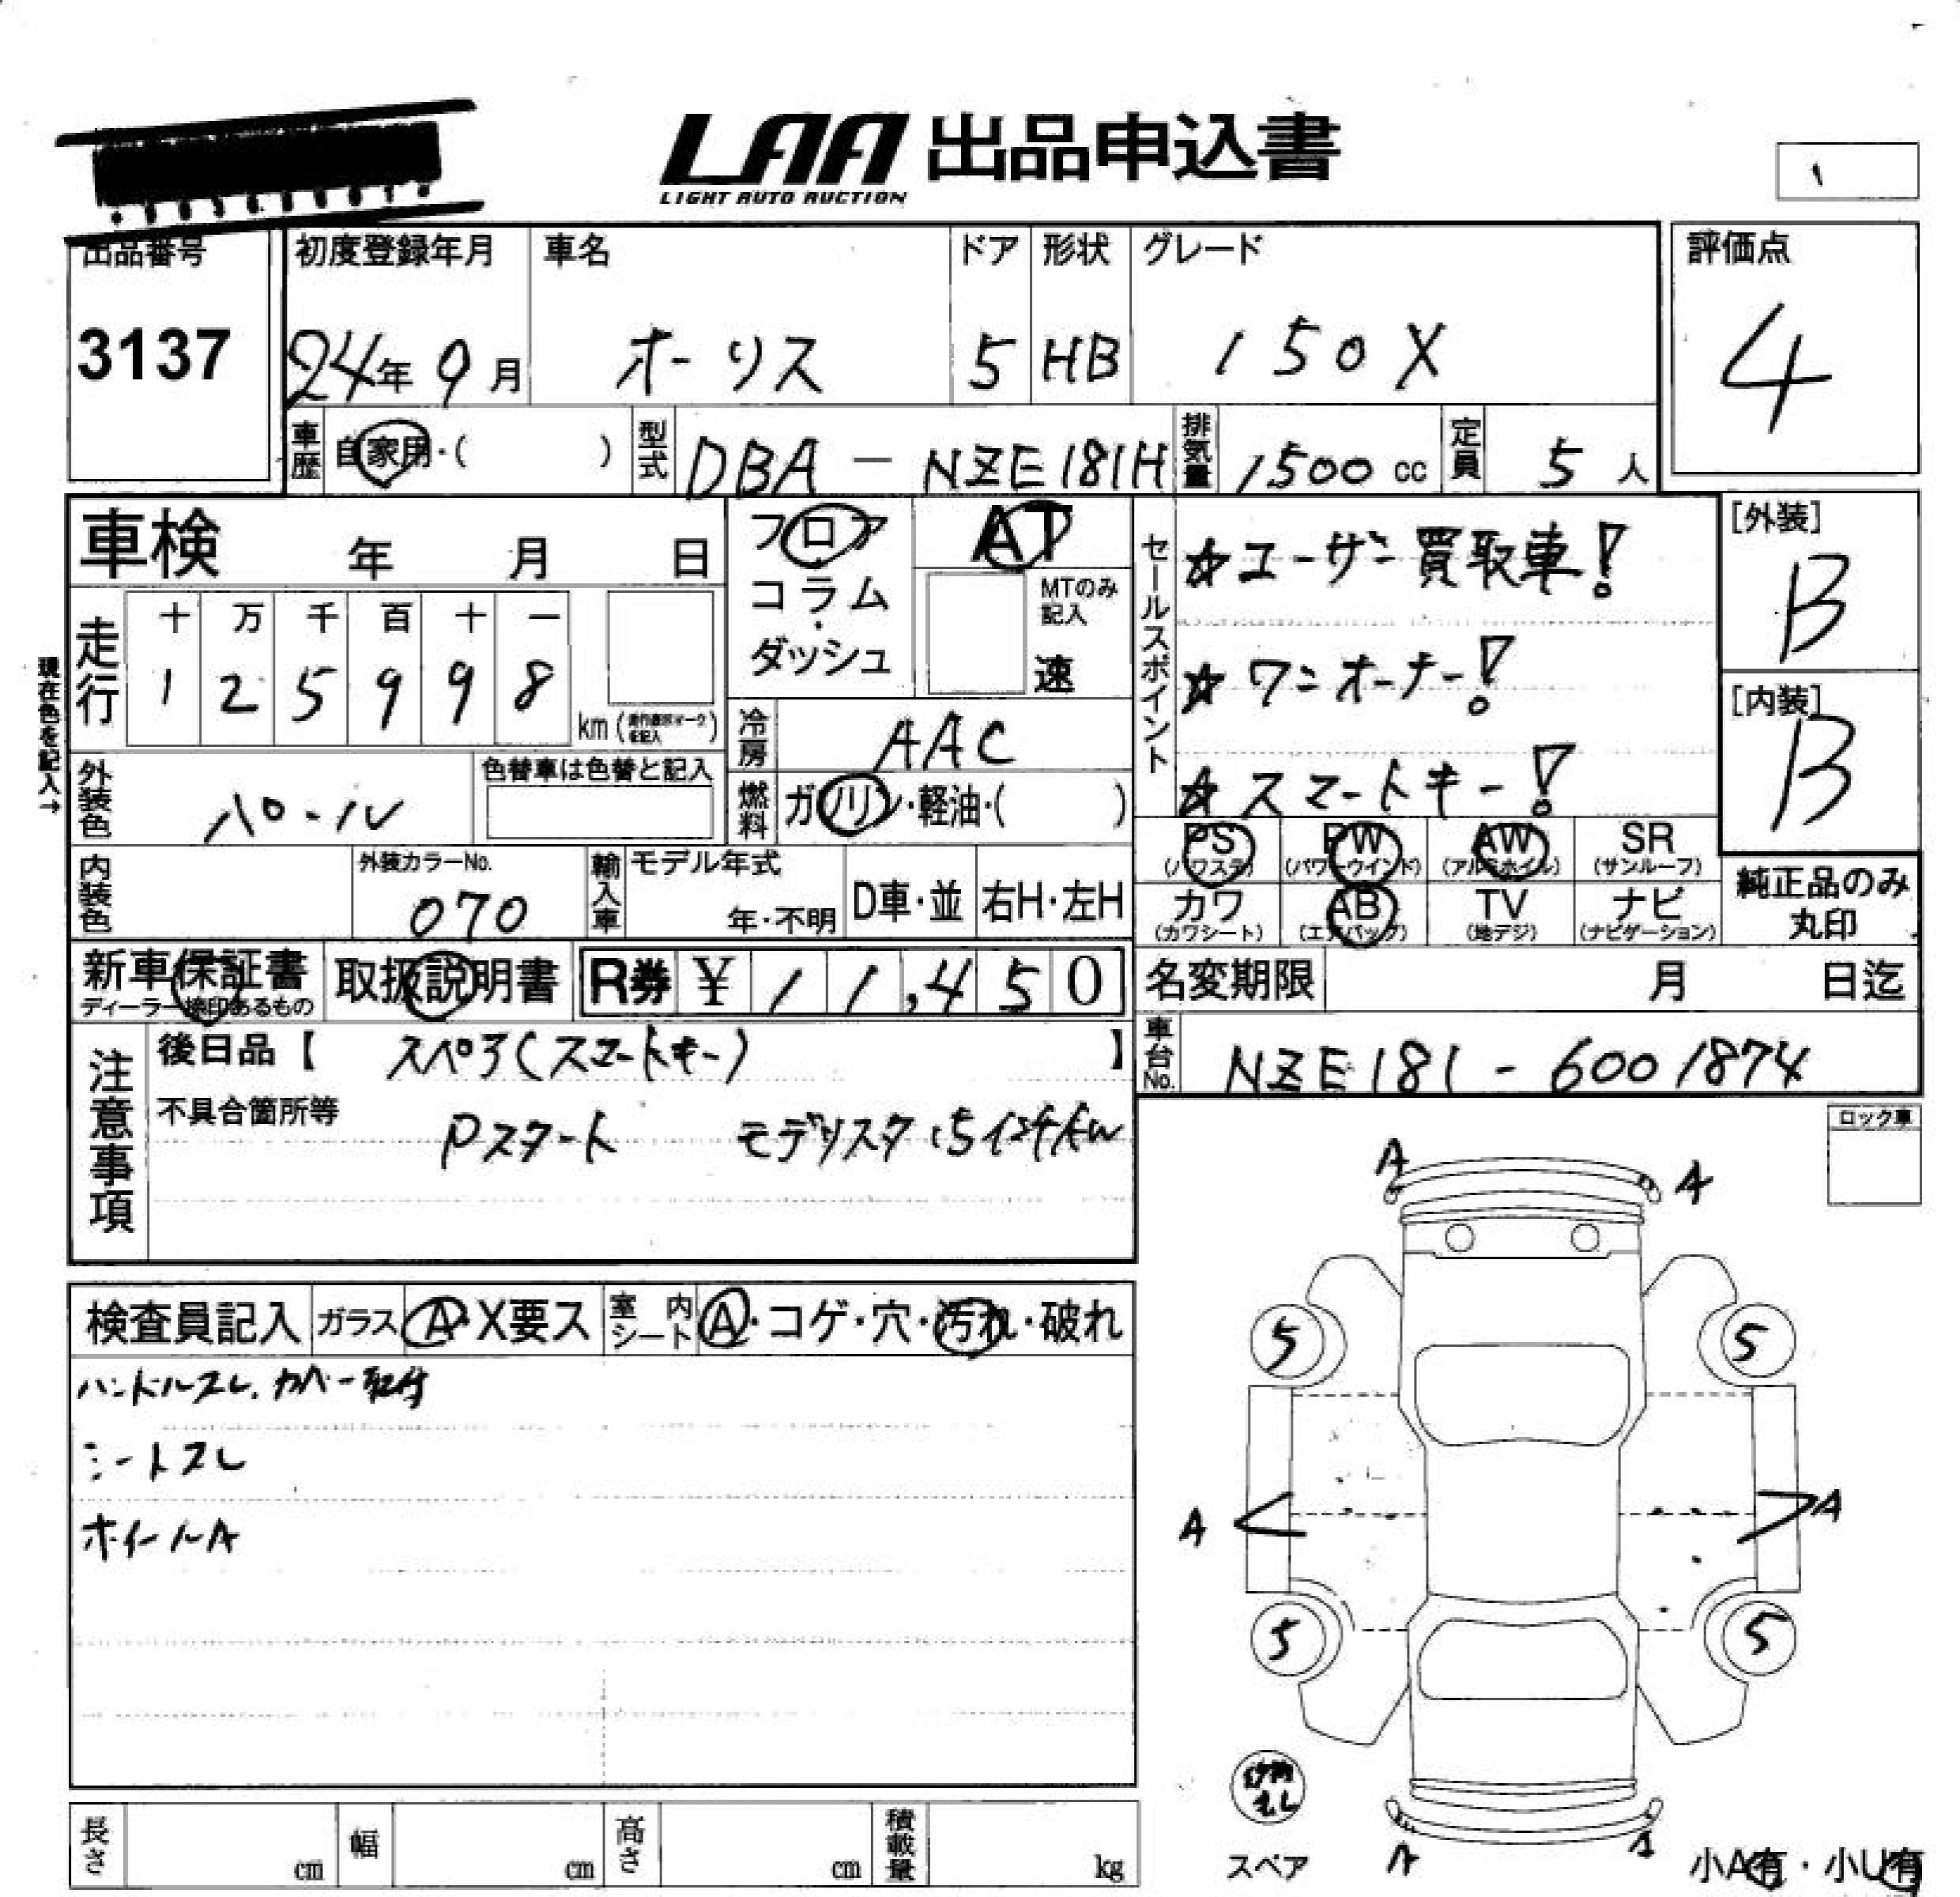 LAA 出品申込書
LIGHT AUTO AUCTION
出品番号 初度登録年月 車名 ドア 形状 グレード 評価点
3137 24年 9月 オーリス 5 HB 150X 4
車歴 自家用・( ) 型式 DBA-NZE181H 排気量 1500 cc 定員 5 人
車検 年 月 日 フロア AT
コラム・ダッシュ MTのみ記入 速
セールスポイント ☆ユーザー買取車!
☆ワンオーナー!
☆スマートキー!
[外装] B
[内装] B
現在色を記入→
走行 十 万 千 百 十 一
1 2 5 9 9 8 km
冷房 AAC
外装色 パール 色替車は色替と記入 燃料 ガソリン・軽油・( )
PS PW AW SR
(パワステ) (パワーウインド) (アルミホイル) (サンルーフ)
カワ AB TV ナビ
(カワシート) (エアバッグ) (地デジ) (ナビゲーション)
純正品のみ
丸印
内装色 外装カラーNo. 070 輸入車 モデル年式 年・不明 D車・並 右H・左H
新車保証書 取扱説明書 R券 ¥ 11,450 名変期限 月 日迄
ディーラー捺印あるもの
車台No. NZE181-6001874
注意事項 後日品【 スペア(スマートキー) 】
不具合箇所等 Pスタート モデリスタ15インチAW
ロック車
検査員記入 ガラス A・X要ス 室内シート A・コゲ・穴・汚れ・破れ
ハンドルスレ、カバー取付
シートスレ
ホイールA
A A
5 5
A A
5 5
スペア A A 小A有・小U有
長さ cm 幅 cm 高さ cm 積載量 kg